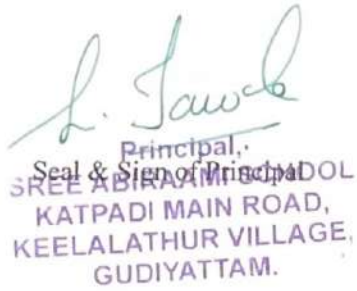 Principal,
Seal & Sign of Principal
SREE ABIRAAMI SCHOOL
KATPADI MAIN ROAD,
KEELALATHUR VILLAGE,
GUDIYATTAM.